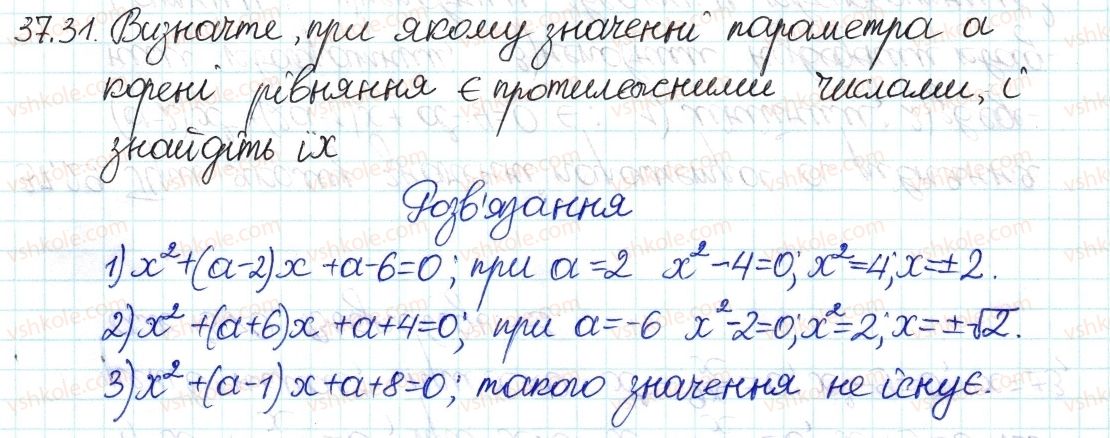 37.31. Визначте, при якому значенні параметра a
корені рівняння є протилежними числами, і
знайдіть їх
Розв'язання
1) x²+(a-2)x +a-6=0; при a=2 x²-4=0; x²=4; x=±2.
2) x² +(a+6)x +a+4=0; при a=-6 x²-2=0; x²=2; x=±√2.
3) x² +(a-1)x+a+8=0; такого значення не існує.